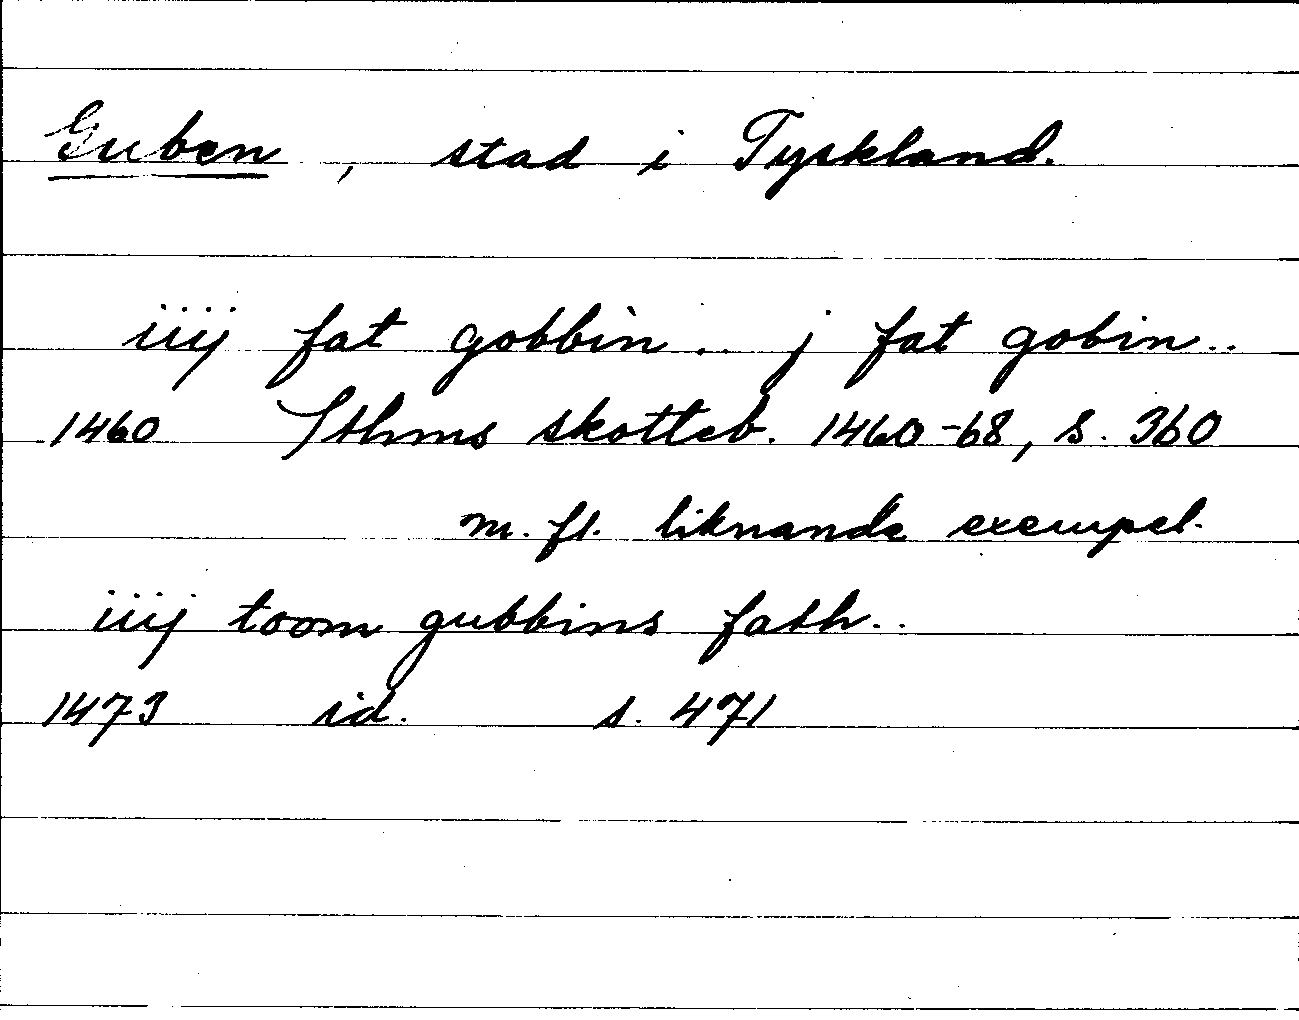 Guben, stad i Tyskland.
iiij fat gobbin .. j fat gobin..
1460 Sthms skotteb. 1460-68, s. 360
m. fl. liknande exempel.
iiij toom gubbins fath..
1473 id. s. 471